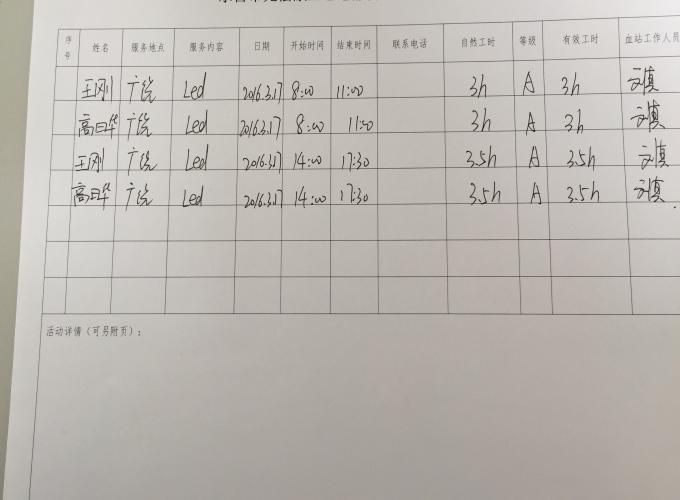 序号 姓名 服务地点 服务内容 日期 开始时间 结束时间 联系电话 自然工时 等级 有效工时 血站工作人员
王刚 广院 Led 2016.3.17 8:00 11:00 3h A 3h
高日华 广院 Led 2016.3.17 8:00 11:00 3h A 3h
王刚 广院 Led 2016.3.17 14:00 17:30 3.5h A 3.5h
高日华 广院 Led 2016.3.17 14:00 17:30 3.5h A 3.5h
活动详情（可另附页）：